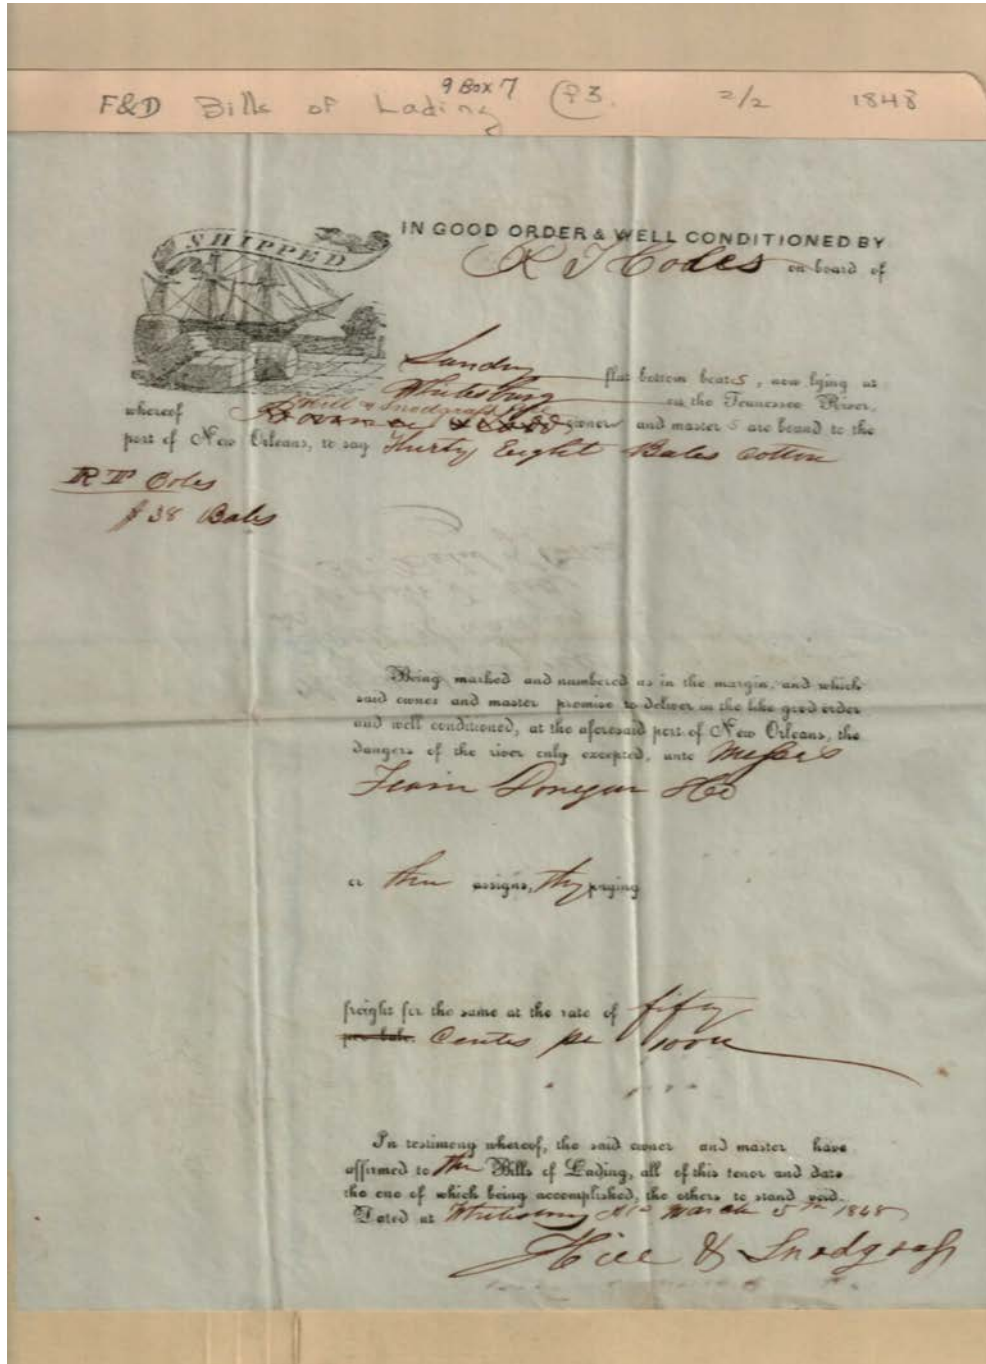 9 Box 7
F&D Bills of Lading P3. 2/2 1848
SHIPPED
IN GOOD ORDER & WELL CONDITIONED BY
R T Coles on board of
Sundry flat bottom boats, now lying at
Whitesburg on the Tennessee River,
Hill & Snodgrass
whereof owner and masters are bound to the
port of New Orleans, to say Thirty Eight Bales Cotton
RT Coles
38 Bales
Being marked and numbered as in the margin, and which
said owner and master promise to deliver in the like good order
and well conditioned, at the aforesaid port of New Orleans, the
dangers of the river only excepted, unto Messrs
Fearn Donegan & Co
or their assigns, they paying
freight for the same at the rate of fifty
per bale. Centes per 100
In testimony whereof, the said owner and master have
affirmed to Bills of Lading, all of this tenor and date
the one of which being accomplished, the others to stand void.
Dated at Whitesburg Ala March 5th 1848
Hill & Snodgrass